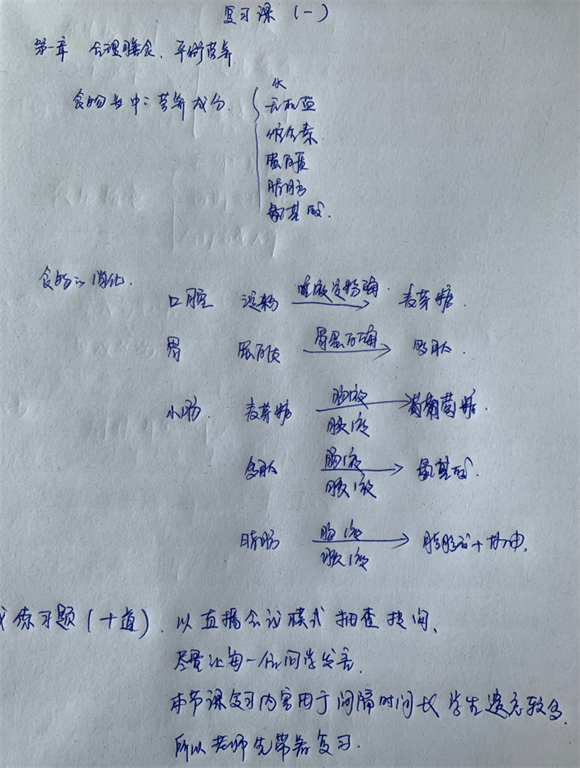 复习课 (一)
第一章 合理膳食、平衡营养
食物中营养成分
水
无机盐
维生素
蛋白质
脂肪
氨基酸
食物的消化
口腔 淀粉 唾液淀粉酶 麦芽糖
胃 蛋白质 胃蛋白酶 多肽
小肠 麦芽糖 肠液 胰液 葡萄糖
多肽 肠液 胰液 氨基酸
脂肪 肠液 胰液 脂肪酸+甘油
练习题 (十道) 以直播会议模式抽查提问、
尽量让每一位同学发言.
本节课复习内容由于间隔时间长 学生遗忘较多
所以老师先带着复习.